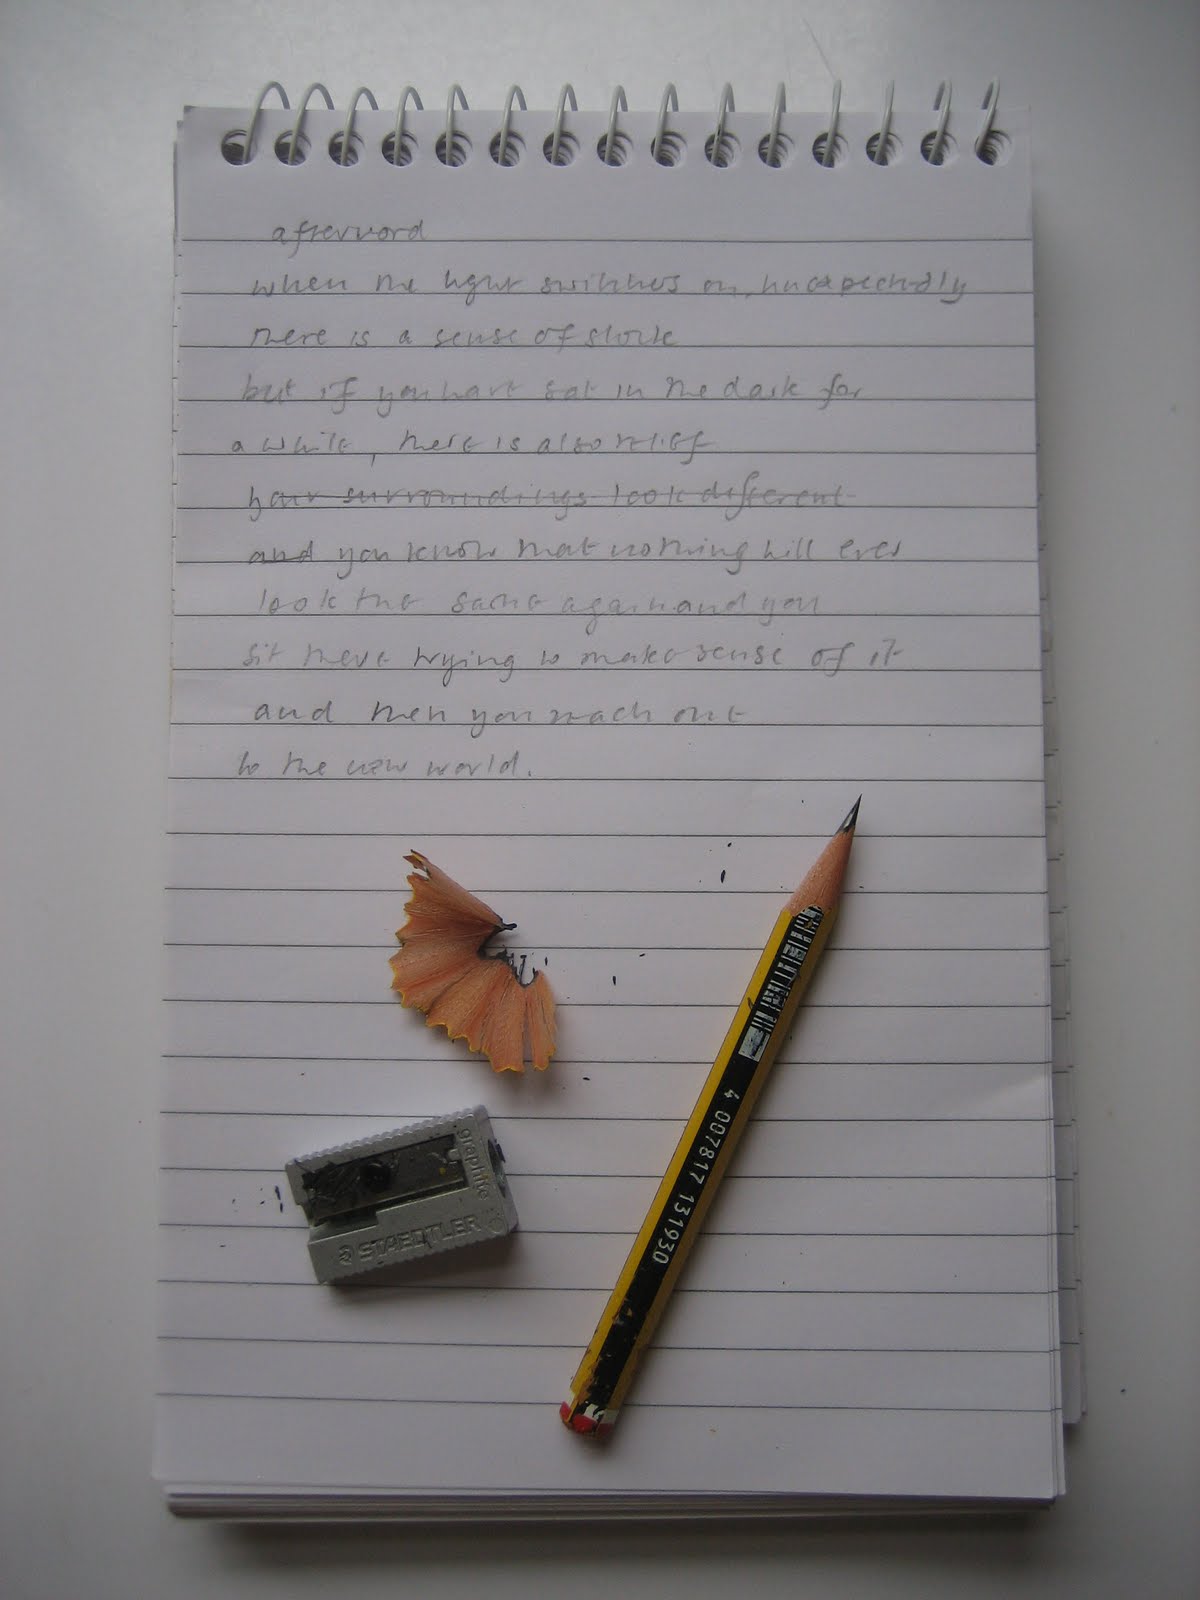 afterword
when the light switches on, unexpectedly
there is a sense of shock
but if you have sat in the dark for
a while, there is also relief
your surroundings look different
and you know that nothing will ever
look the same again and you
sit there trying to make sense of it
and then you reach out
to the new world.
4 007817 131930
graphite
STAEDTLER